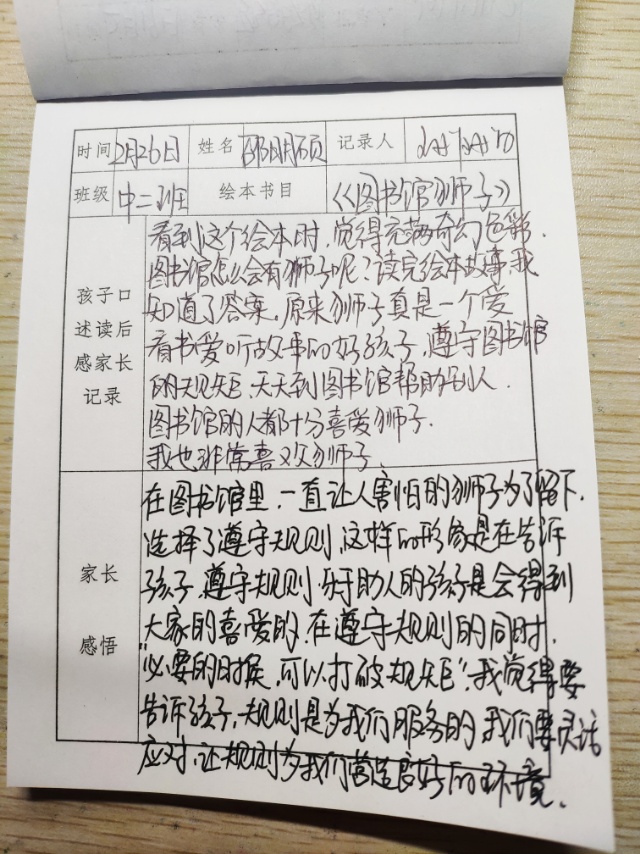 时间 2月26日 姓名 邵明硕 记录人
班级 中二班 绘本书目 《图书馆狮子》
孩子口
述读后
感家长
记录
看到这个绘本时，觉得充满奇幻色彩.
图书馆怎么会有狮子呢？读完绘本故事我
知道了答案，原来狮子真是一个爱
看书爱听故事的好孩子，遵守图书馆
的规矩，天天到图书馆帮助别人.
图书馆的人都十分喜爱狮子.
我也非常喜欢狮子.
家长
感悟
在图书馆里，一直让人害怕的狮子为了留下，
选择了遵守规则，这样的形象是在告诉
孩子，遵守规则，乐于助人的孩子是会得到
大家的喜爱的，在遵守规则的同时，
“必要的时候，可以打破规矩”，我觉得要
告诉孩子，规则是为我们服务的，我们要灵活
应对，让规则为我们营造良好的环境.